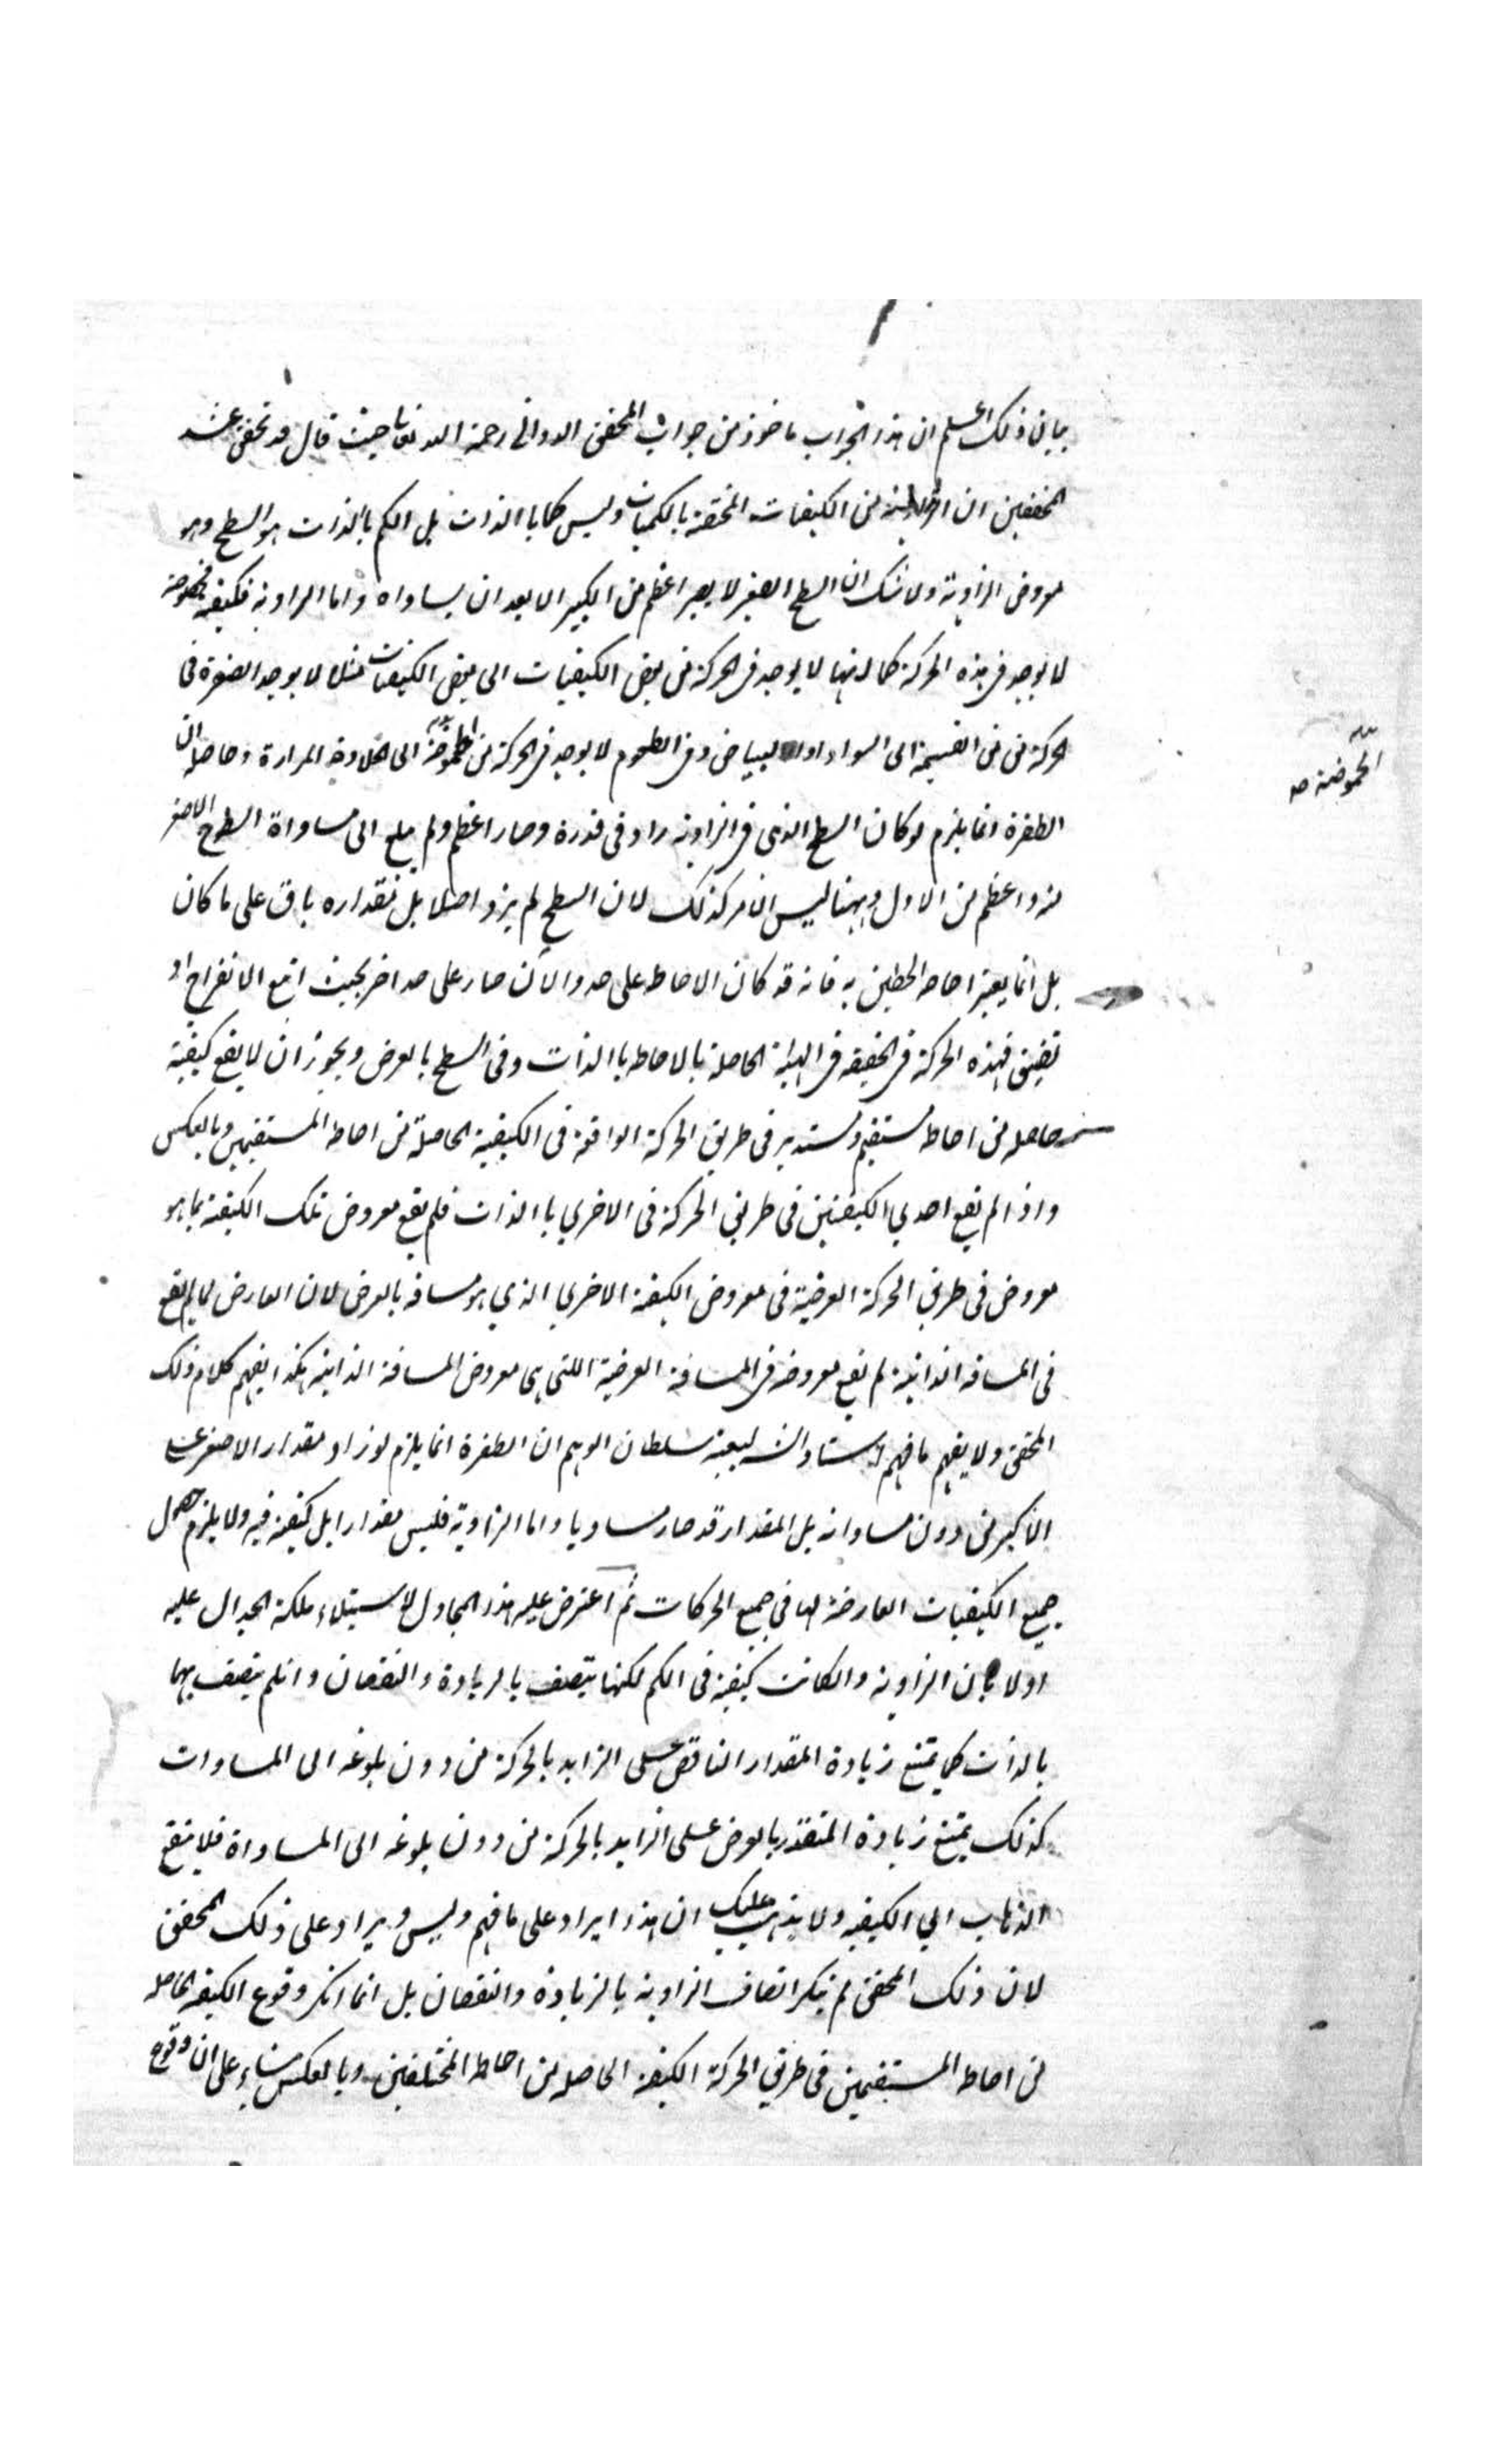 بيان ذلك اعلم ان هذا الجواب ماخوذ من جواب المحقق الدواني رحمة الله تعالى حيث قال قد تحقق عند
المحققين ان الزاوية من الكيفيات المختصة بالكميات وليس كما باالذات بل الكم بالذات هو السطح وهو
معروض الزاوية ولا شك ان السطح الصغير لا يصير اعظم من الكبير الا بعد ان يساواه واما الزاوية فكيفية مخصوصة
لا توجد في هذه الحركة كما انها لا يوجد في الحركة من بعض الكيفيات الى بعض الكيفيات مثلا لا يوجد الصفرة في
الحركة من الى السواد او البياض وفي الطعوم لا يوجد في الحركة من الحموضة الى الحلاوة المرارة وحاصله ان
الحموضة صه
الطفرة انما يلزم لو كان السطح الذي في الزاوية زاد في قدره وصار اعظم ولم يبلغ الى مساواة السطح الاصغر
منه واعظم من الاول وههنا ليس الامر كذلك لان السطح لم يزد اصلا بل مقداره باق على ما كان
بل انما يعتبر احاطة الخطين به فانه قد كان الاحاطة على حد والآن صار على حد اخر بحيث اتسع الانفراج او
تضيق فهذه الحركة في الحقيقة في الهيئة الحاصلة بالاحاطة باالذات وفي السطح بالعرض ويجوز ان لا يقع كيفية
حاصلة من احاطة مستقيم ومستدير في طريق الحركة الواقعة في الكيفية الحاصلة من احاطة المستقيمين وبالعكس
واذا لم يقع احدي الكيفيتين في طريق الحركة في الاخري باالذات فلم يقع معروض تلك الكيفية بما هو
معروض في طريق الحركة العرضية في معروض الكيفية الاخري الذي هو مسافة بالعرض لان العارض لما لم يقع
في المسافة الذاتية لم يقع معروضه في المسافة العرضية اللتي هي معروض المسافة الذاتية هكذا يفهم كلام ذلك
المحقق ولا يفهم ما فهم سلطان الوهم ان الطفرة انما يلزم لو زاد مقدار الاصغر على
الاكبر من دون مساواته بل المقدار قد صار مساويا واما الزاوية فليس مقدارا بل كيفية فيه ولا يلزم حصول
جميع الكيفيات العارضة لها في جميع الحركات ثم اعترض عليه هذا المجادل لاستيلاء ملكة الجدال عليه
اولا بان الزاوية وان كانت كيفية في الكم لكنها يتصف بالزيادة والنقصان وان لم يتصف بهما
بالذات كما يمتنع زيادة المقدار الناقص على الزايد بالحركة من دون بلوغه الى المساوات
كذلك يمتنع زيادة المتقدر بالعرض على الزايد بالحركة من دون بلوغه الى المساواة فلا ينفع
الذهاب الي الكيفية ولا يذهب عليك ان هذا ايراد على ما فهم وليس ويراد على ذلك المحقق
لان ذلك المحقق لم ينكر اتصاف الزاوية بالزيادة والنقصان بل انما انكر وقوع الكيفية الحاصلة
من احاطة المستقيمين في طريق الحركة الكيفية الحاصلة من احاطة المختلفين وبالعكس بناء على ان وقوع